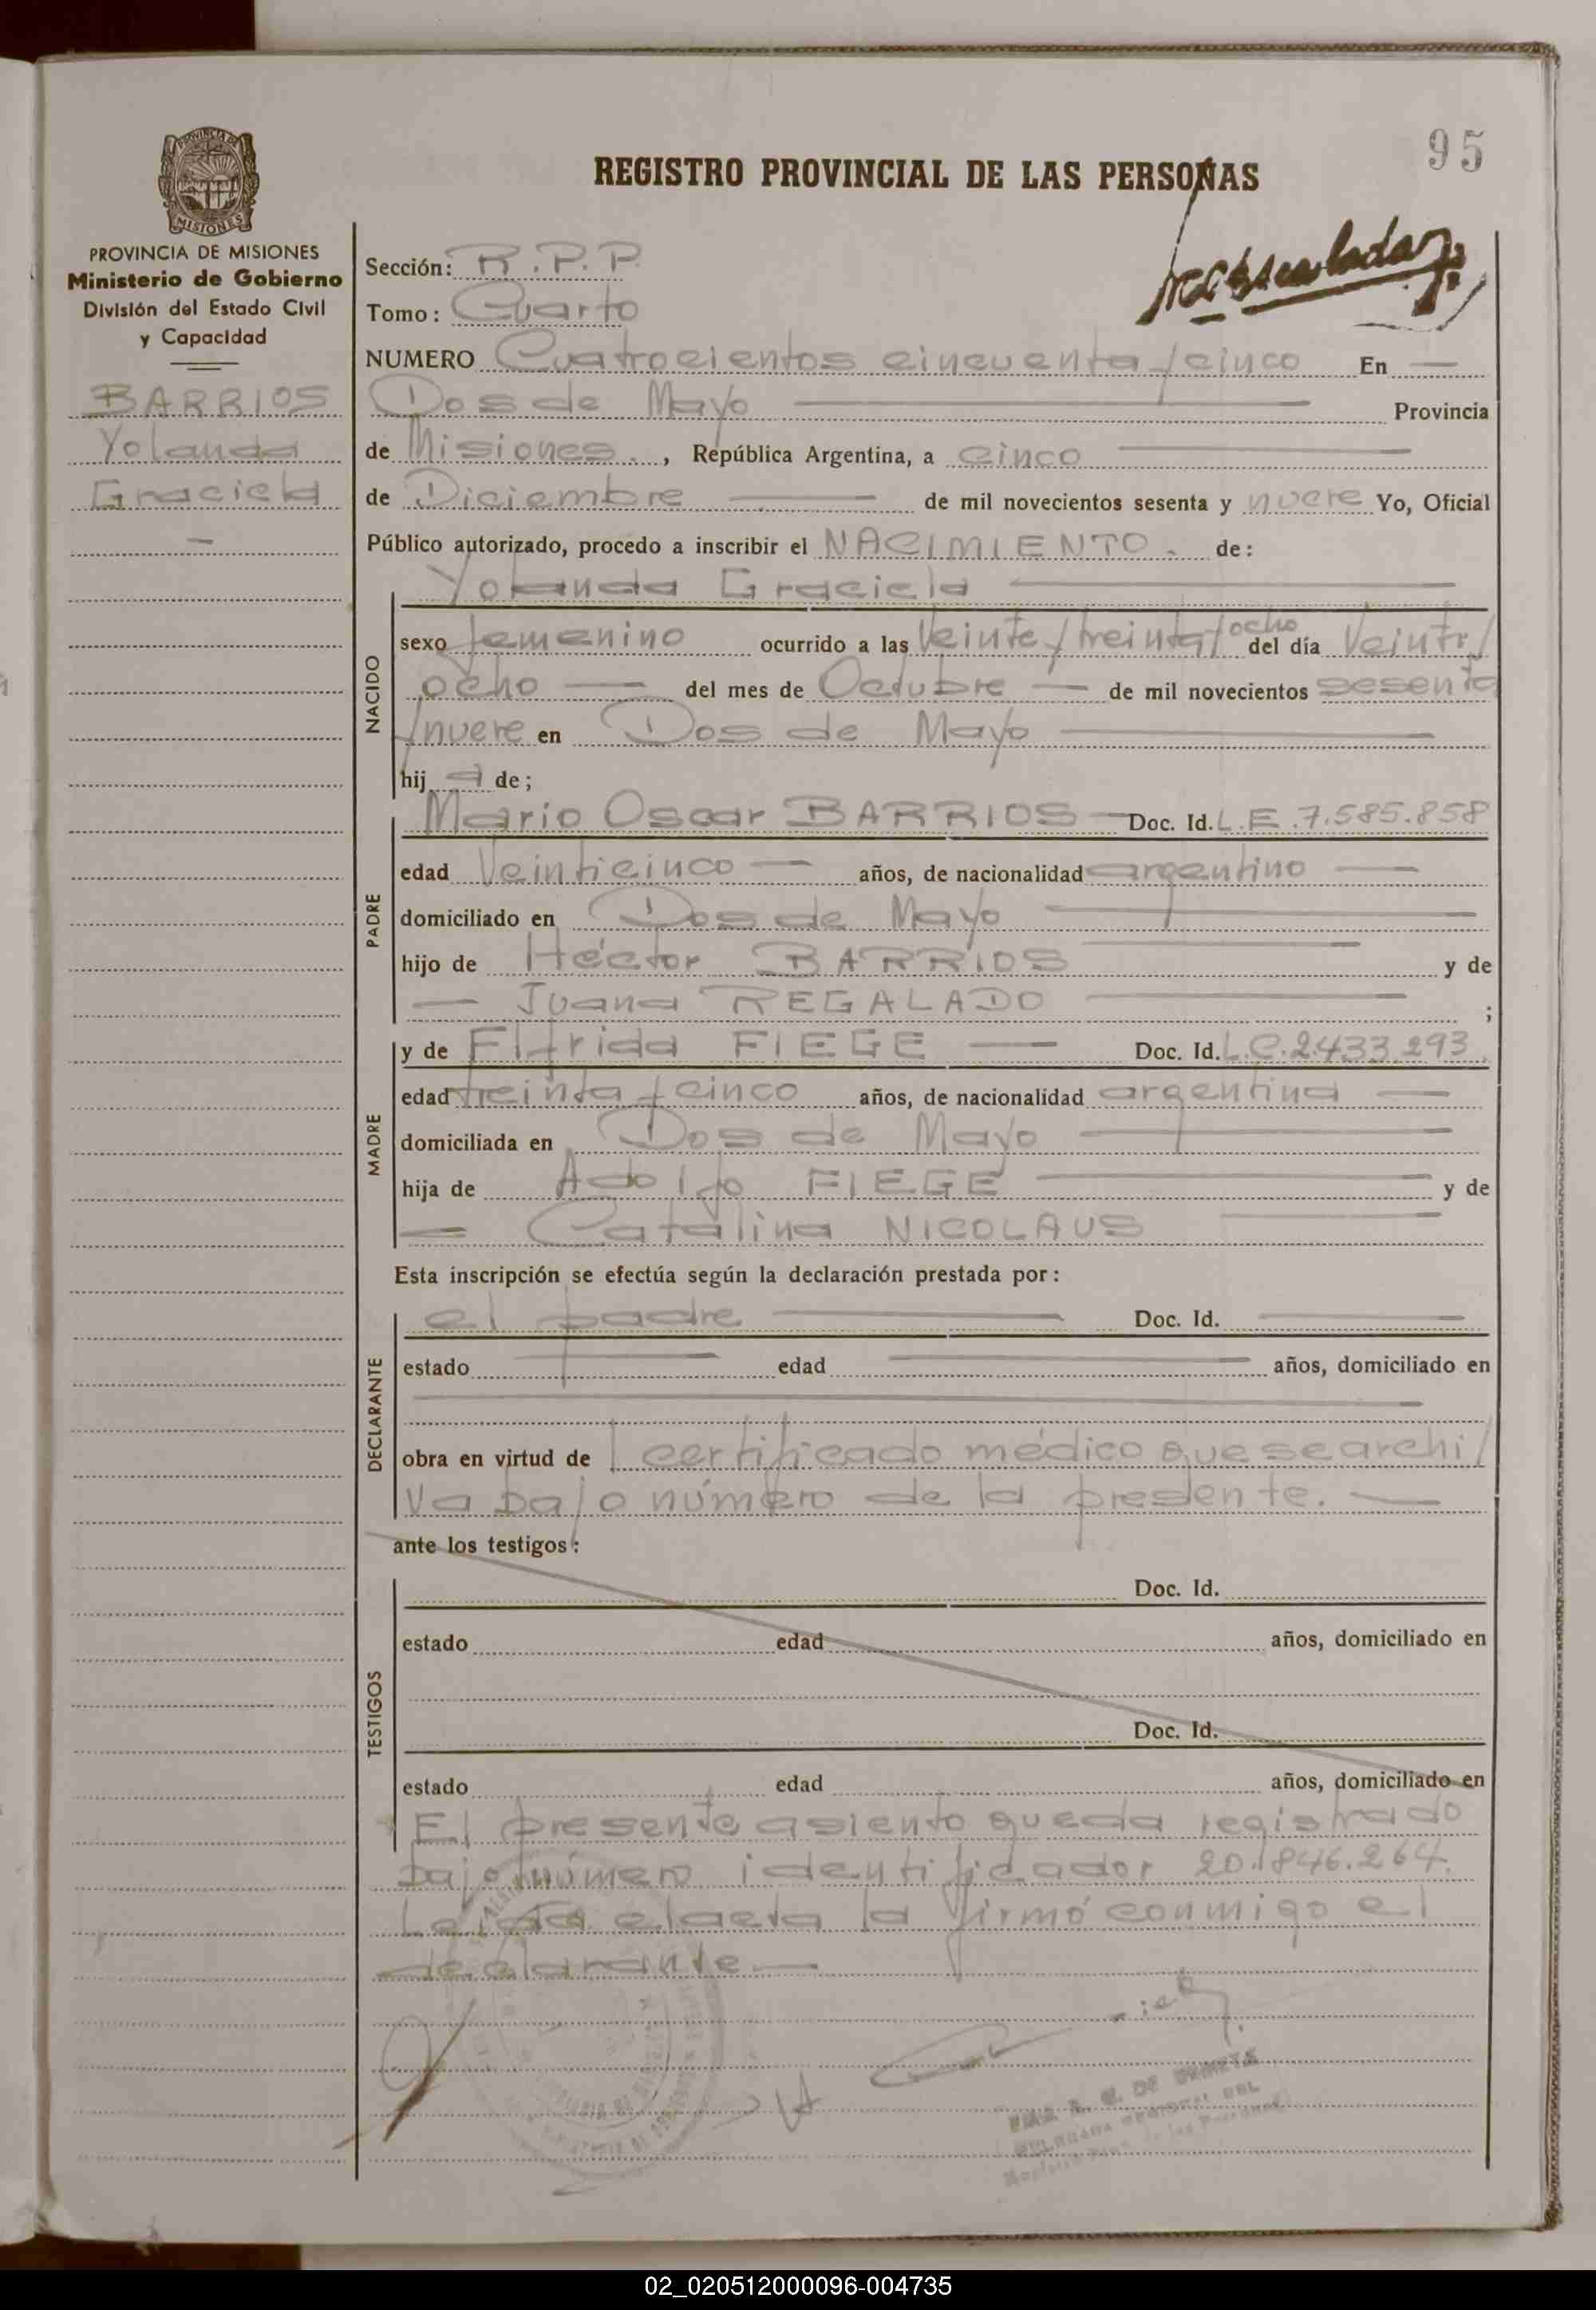 95
REGISTRO PROVINCIAL DE LAS PERSONAS
PROVINCIA DE
MISIONES
PROVINCIA DE MISIONES
Ministerio de Gobierno
División del Estado Civil
y Capacidad
BARRIOS
Yolanda
Graciela
Sección: R.P.P.
Tomo: Cuarto
NUMERO Cuatrocientos cincuenta/cinco En —
Dos de Mayo — Provincia
de Misiones., República Argentina, a cinco —
de Diciembre — de mil novecientos sesenta y nueve Yo, Oficial
Público autorizado, procedo a inscribir el NACIMIENTO. de:
Yolanda Graciela —
NACIDO
sexo femenino ocurrido a las Veinte/treinta/ocho del día Veinti/
ocho — del mes de Octubre — de mil novecientos sesenta
/nueve en Dos de Mayo —
hij a de;
PADRE
Mario Oscar BARRIOS — Doc. Id. L.E.7.585.858
edad Veinticinco — años, de nacionalidad argentino —
domiciliado en Dos de Mayo —
hijo de Héctor BARRIOS — y de
— Juana REGALADO — ;
MADRE
y de Elfrida FIEGE — Doc. Id. L.C.2.433.293
edad treinta/cinco años, de nacionalidad argentina —
domiciliada en Dos de Mayo —
hija de Adolfo FIEGE — y de
— Catalina NICOLAUS —
Esta inscripción se efectúa según la declaración prestada por:
DECLARANTE
el padre — Doc. Id. —
estado — edad — años, domiciliado en
—
obra en virtud de l certificado médico que se archi/
va bajo número de la presente. —
ante los testigos:
TESTIGOS
Doc. Id.
estado edad años, domiciliado en
Doc. Id.
estado edad años, domiciliado en
El presente asiento queda registrado
bajo número identificador 20.846.264.
Leída el acta la firmó conmigo el
declarante —
02_020512000096-004735